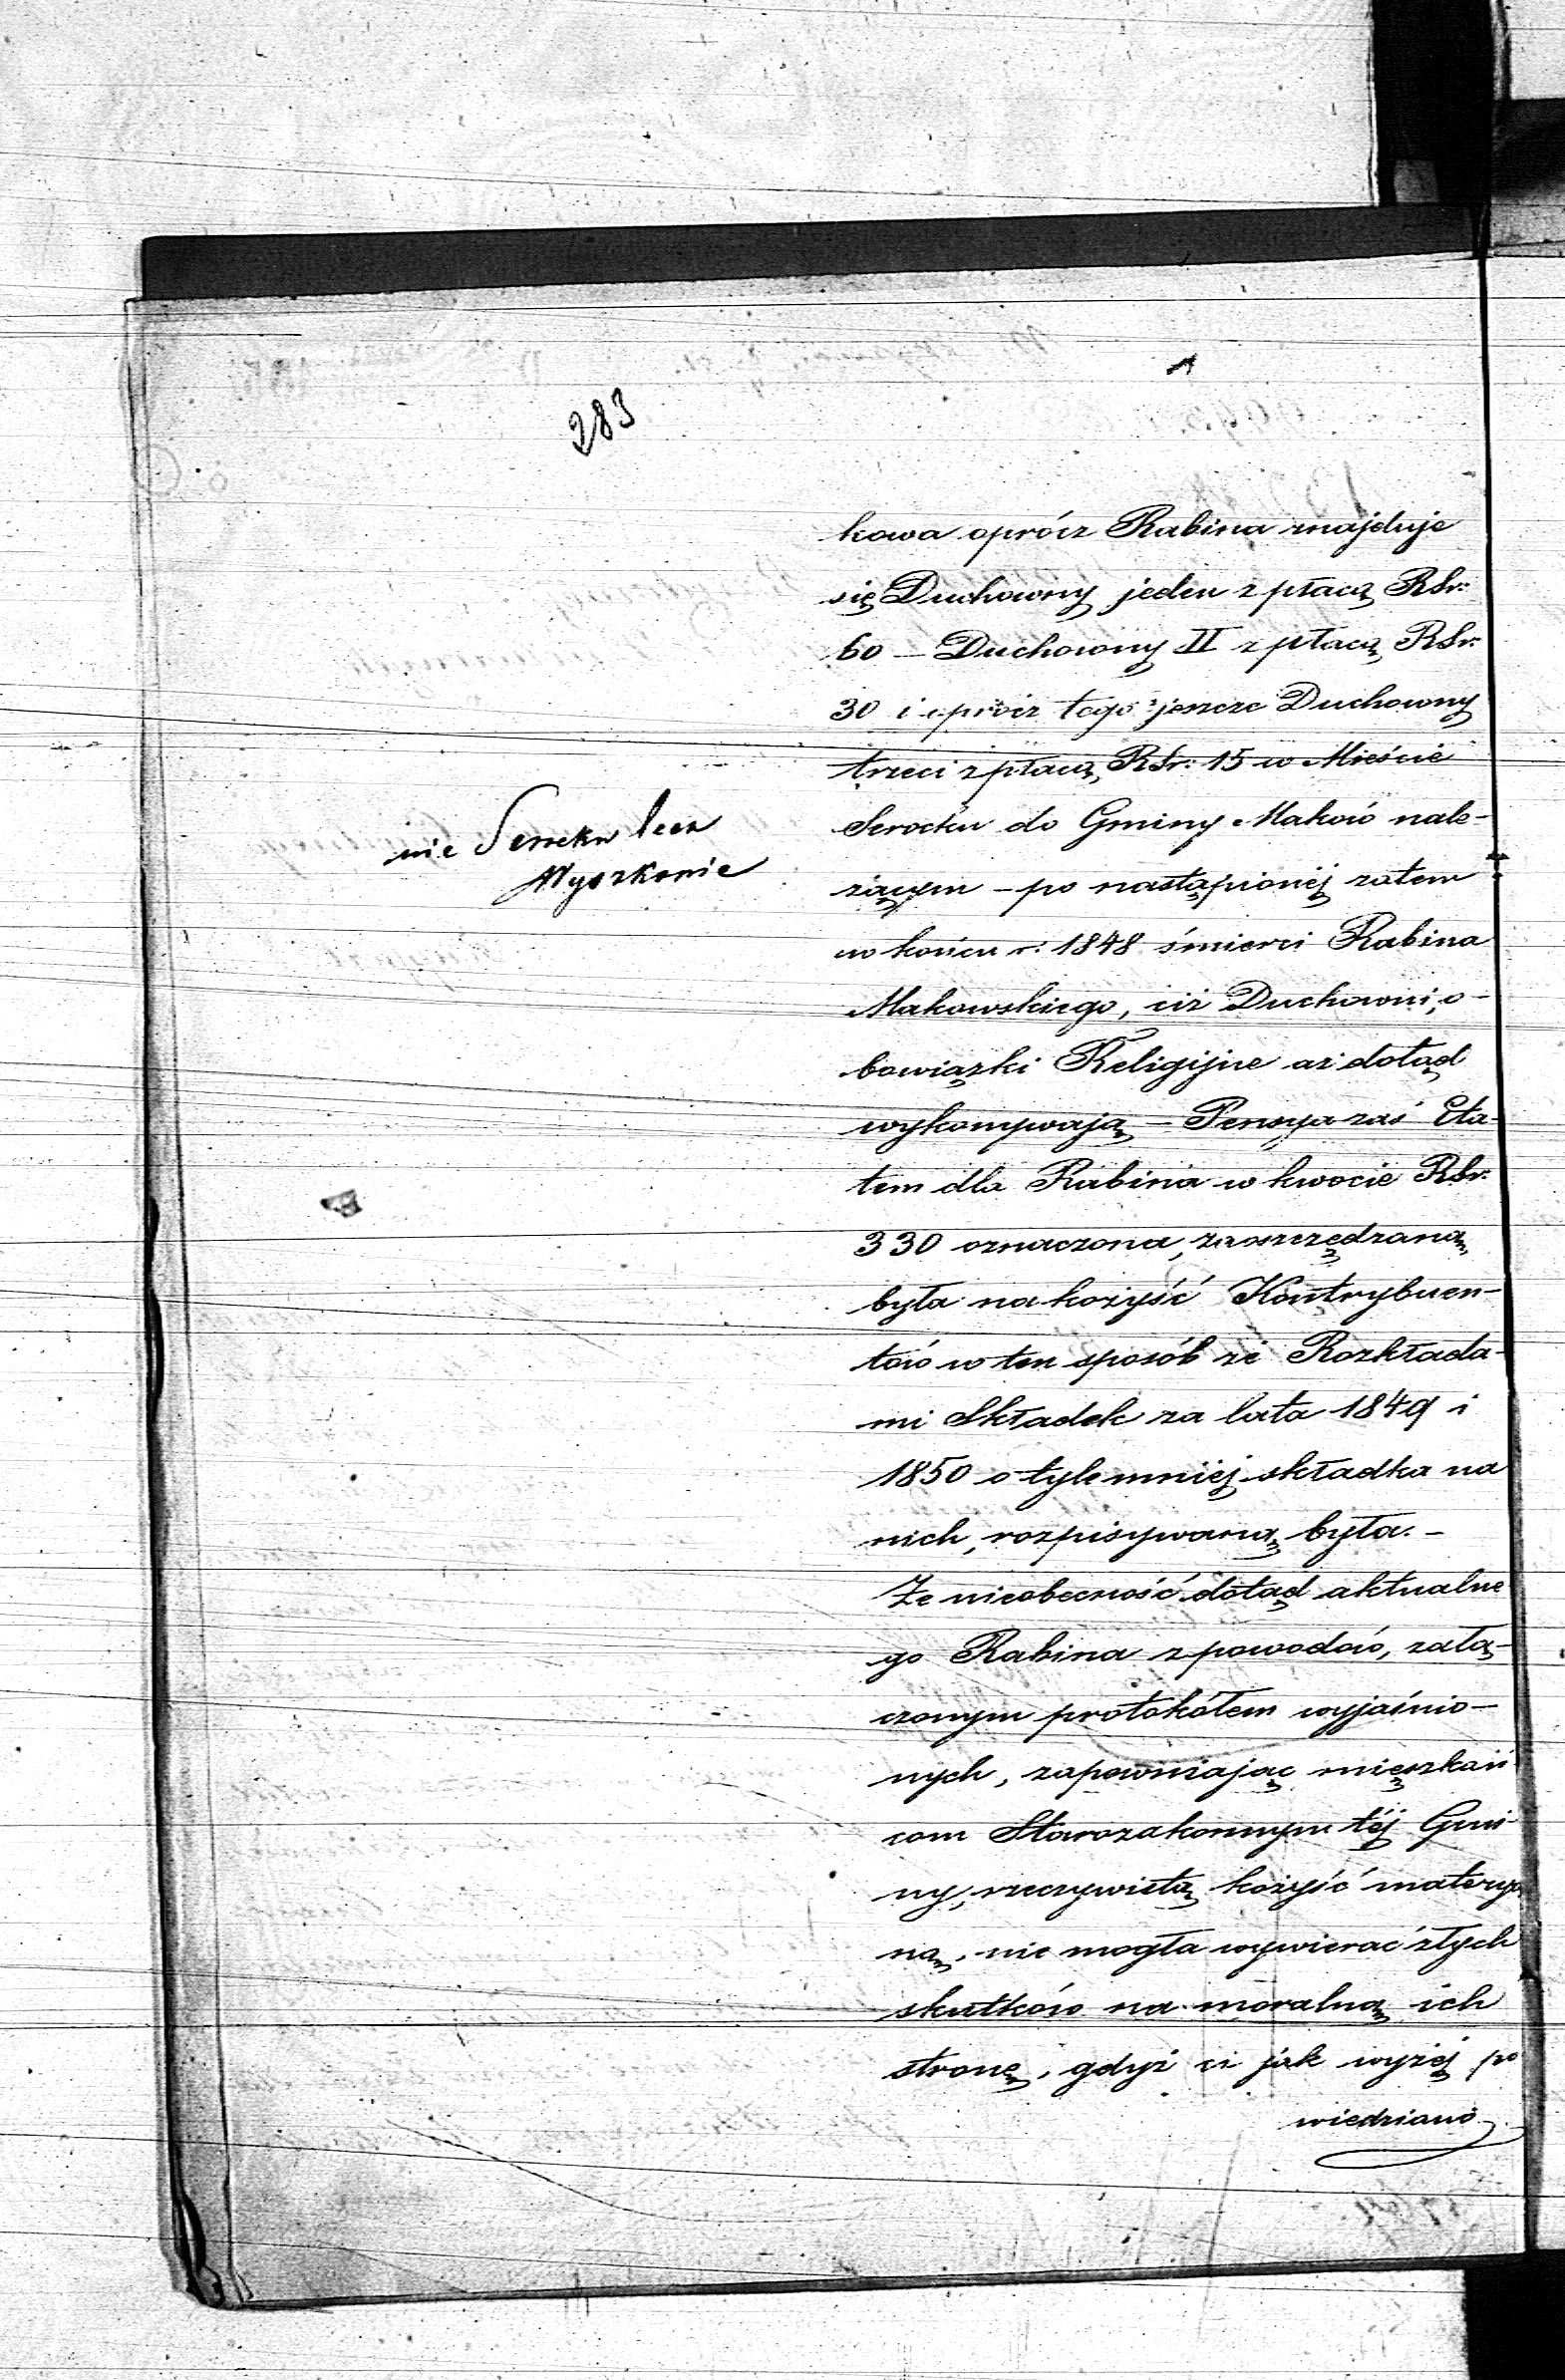 283
kowa oprócz Rabina znajduje
się Duchowny jeden z płacą RSr:
60 – Duchowny II z płacą RSr:
30 i oprócz tego jeszcze Duchowny
trzeci z płacą RSr: 15 w Mieście
Serocku do Gminy Maków nale-
nie Serocku lecz
Wyszkowie
żącym – po nastąpionéj zatem
w końcu r: 1848 śmierci Rabina
Makowskiego, ciż Duchowni, o-
bowiązki Religijne aż dotąd
wykonywają – Pensya zaś Eta-
tem dla Rabina w kwocie RSr:
330 oznaczona, zaoszczędzaną
była na kożyść Kontrybuen-
tów w ten sposób że Rozkłada-
mi Składek za lata 1849 i
1850 o tyle mniéj składka na
nich, rozpisywaną była. –
Że nieobecność dotąd aktualne
go Rabina z powodów, załą-
czonym protokółem wyjaśnio-
nych, zapewniając mieszkań-
com Starozakonnym téj Gmi-
ny, rzeczywistą kożyść materyal
ną, nie mogła wywierać złych
skutków na moralną ich
stronę, gdyż ci jak wyżéj po
wiedziano